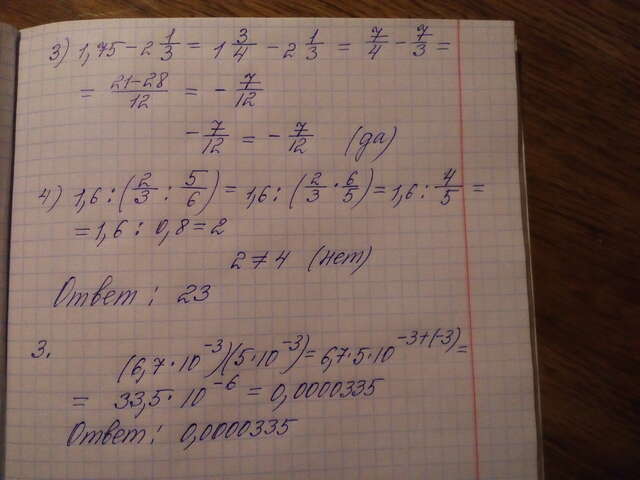 3) 1,75 - 2 1/3 = 1 3/4 - 2 1/3 = 7/4 - 7/3 =
= 21-28/12 = - 7/12
- 7/12 = - 7/12 (да)
4) 1,6 : (2/3 : 5/6) = 1,6 : (2/3 · 6/5) = 1,6 : 4/5 =
= 1,6 : 0,8 = 2
2 ≠ 4 (нет)
Ответ: 23
3. (6,7 · 10^-3)(5 · 10^-3) = 6,7 · 5 · 10^-3+(-3) =
= 33,5 · 10^-6 = 0,0000335
Ответ: 0,0000335